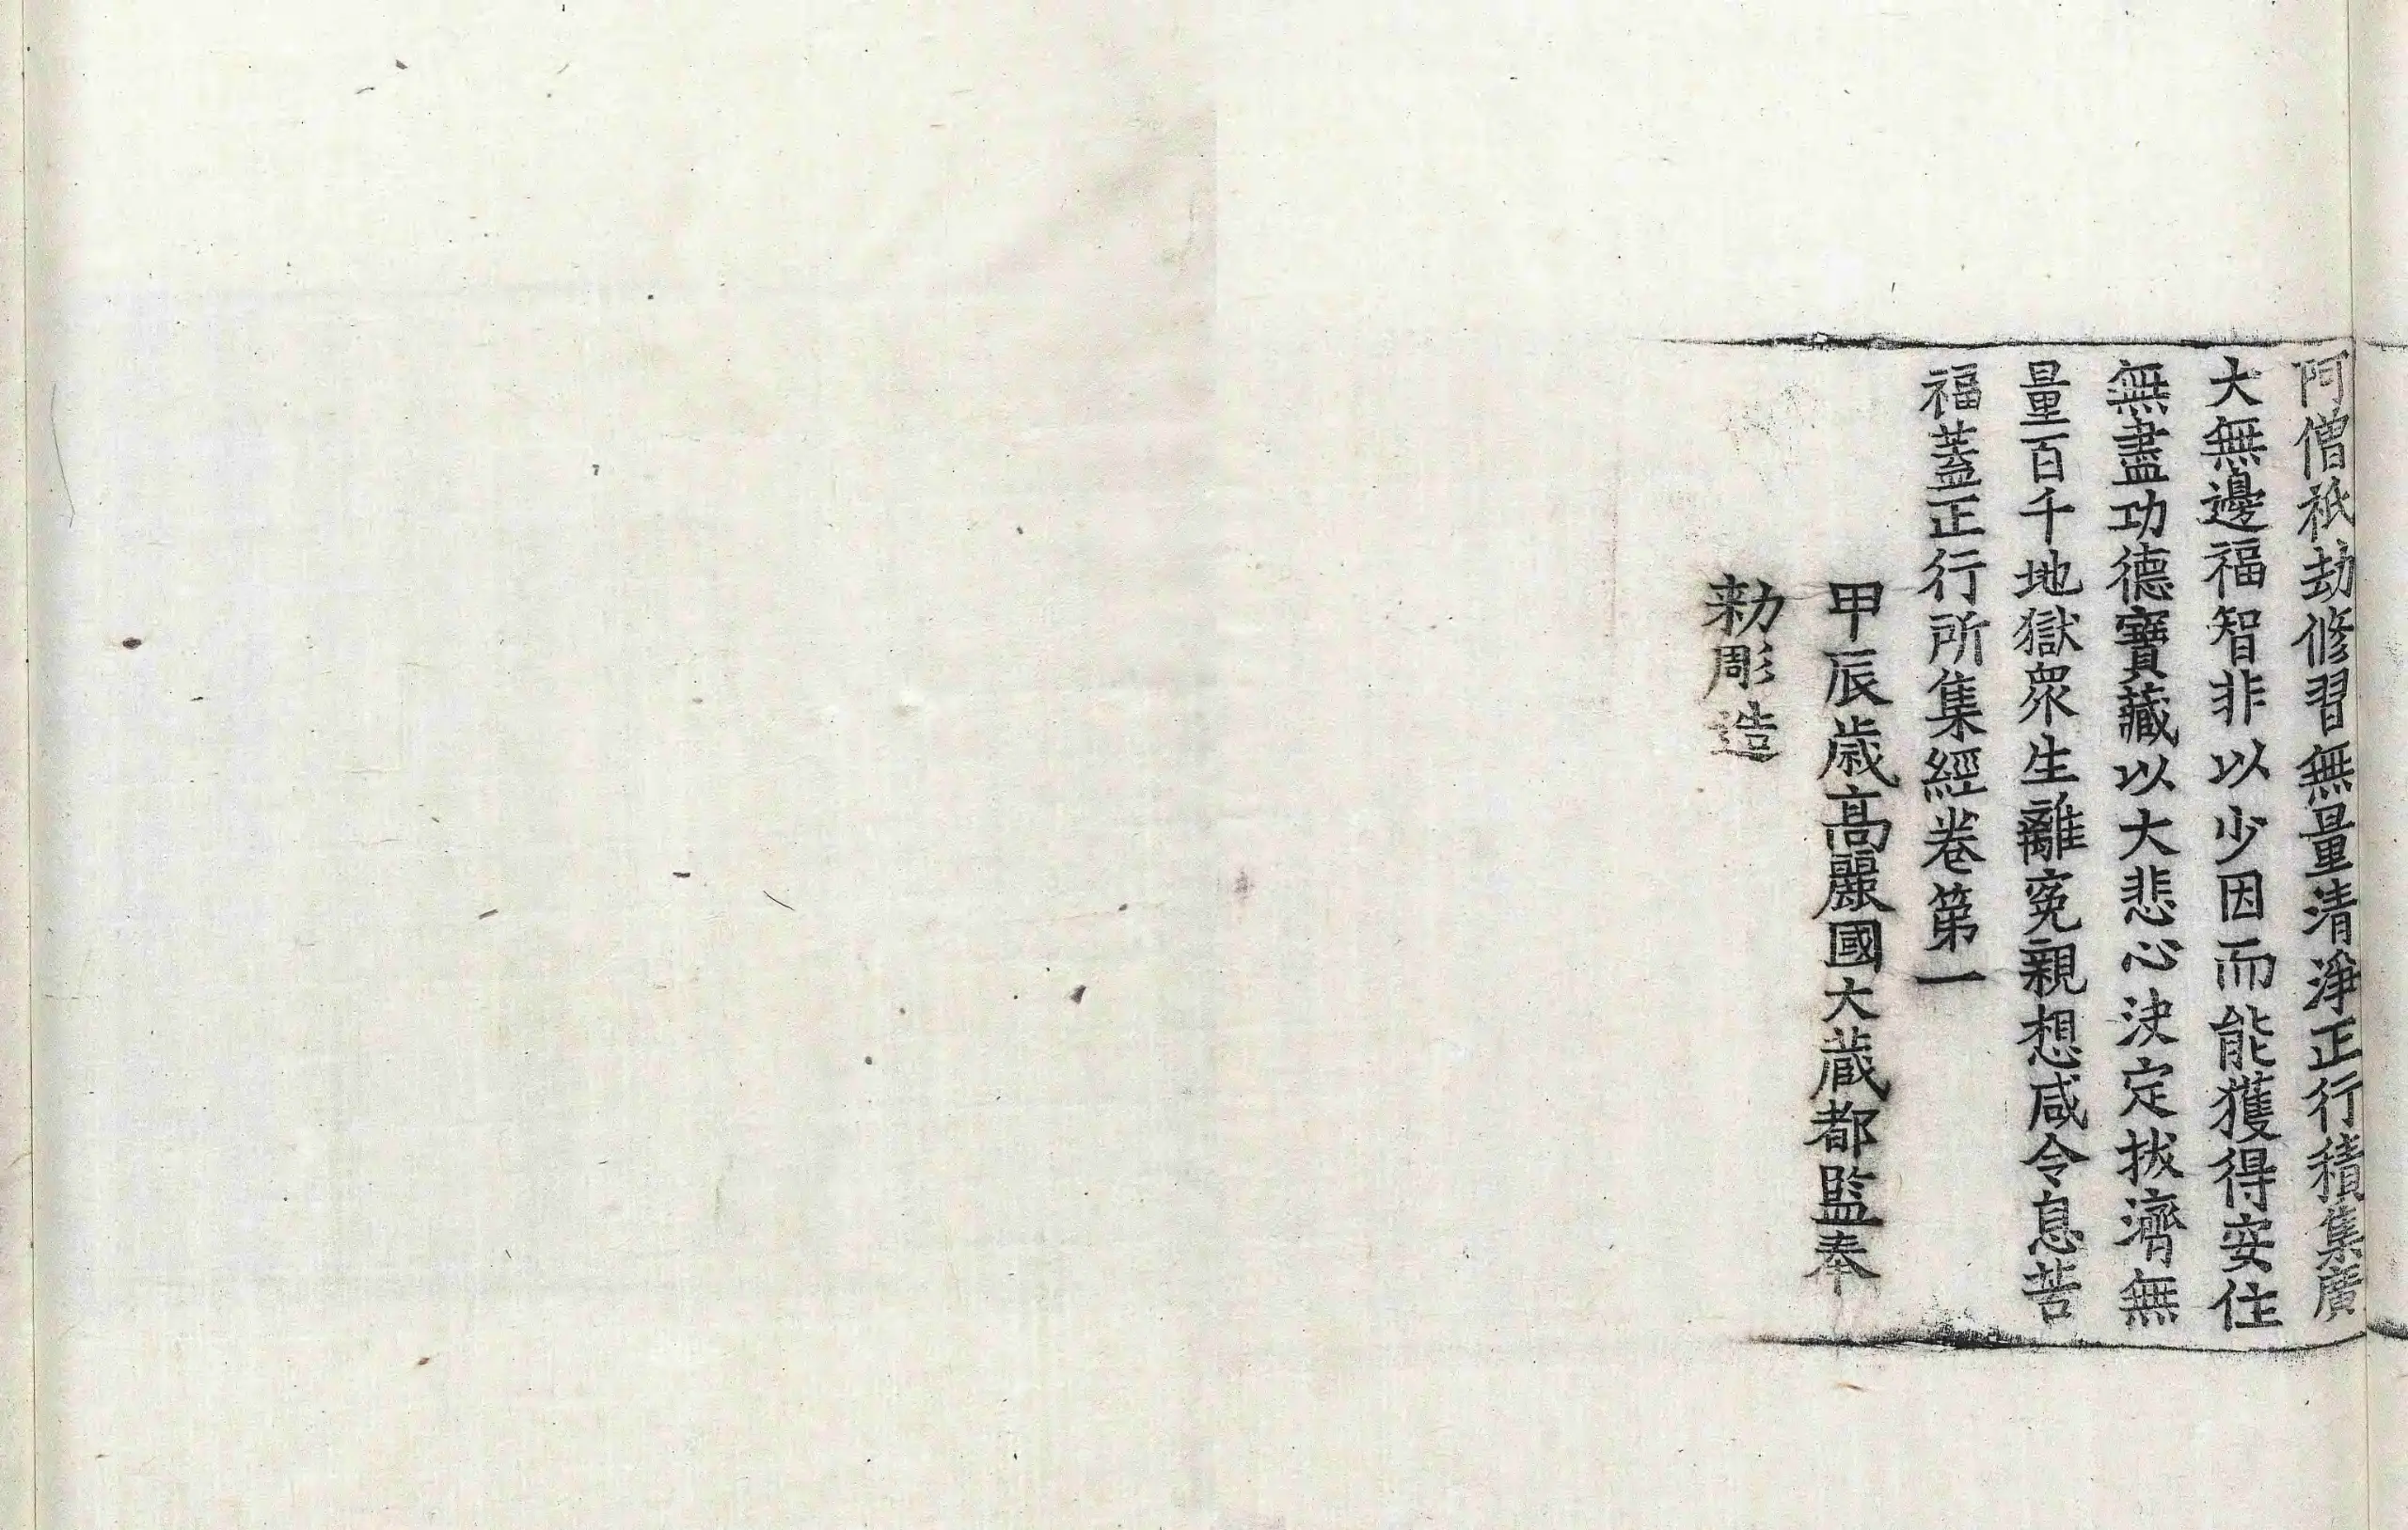 阿僧祇劫修習無量清淨正行積集廣
大無邊福智非以少因而能獲得安住
無盡功德寶藏以大悲心決定拔濟無
量百千地獄衆生離寃親想咸令息苦
福蓋正行所集經卷第一
甲辰歲高麗國大藏都監奉
勅彫造